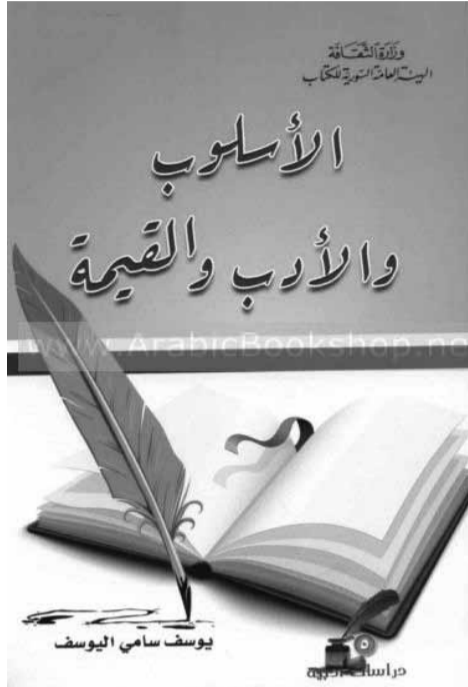 وزارة الثقافة
الهيئة العامة السورية للكتاب
الأسلوب
والأدب والقيمة
www.ArabicBookshop.ne
يوسف سامي اليوسف
٥
دراسات أدبية